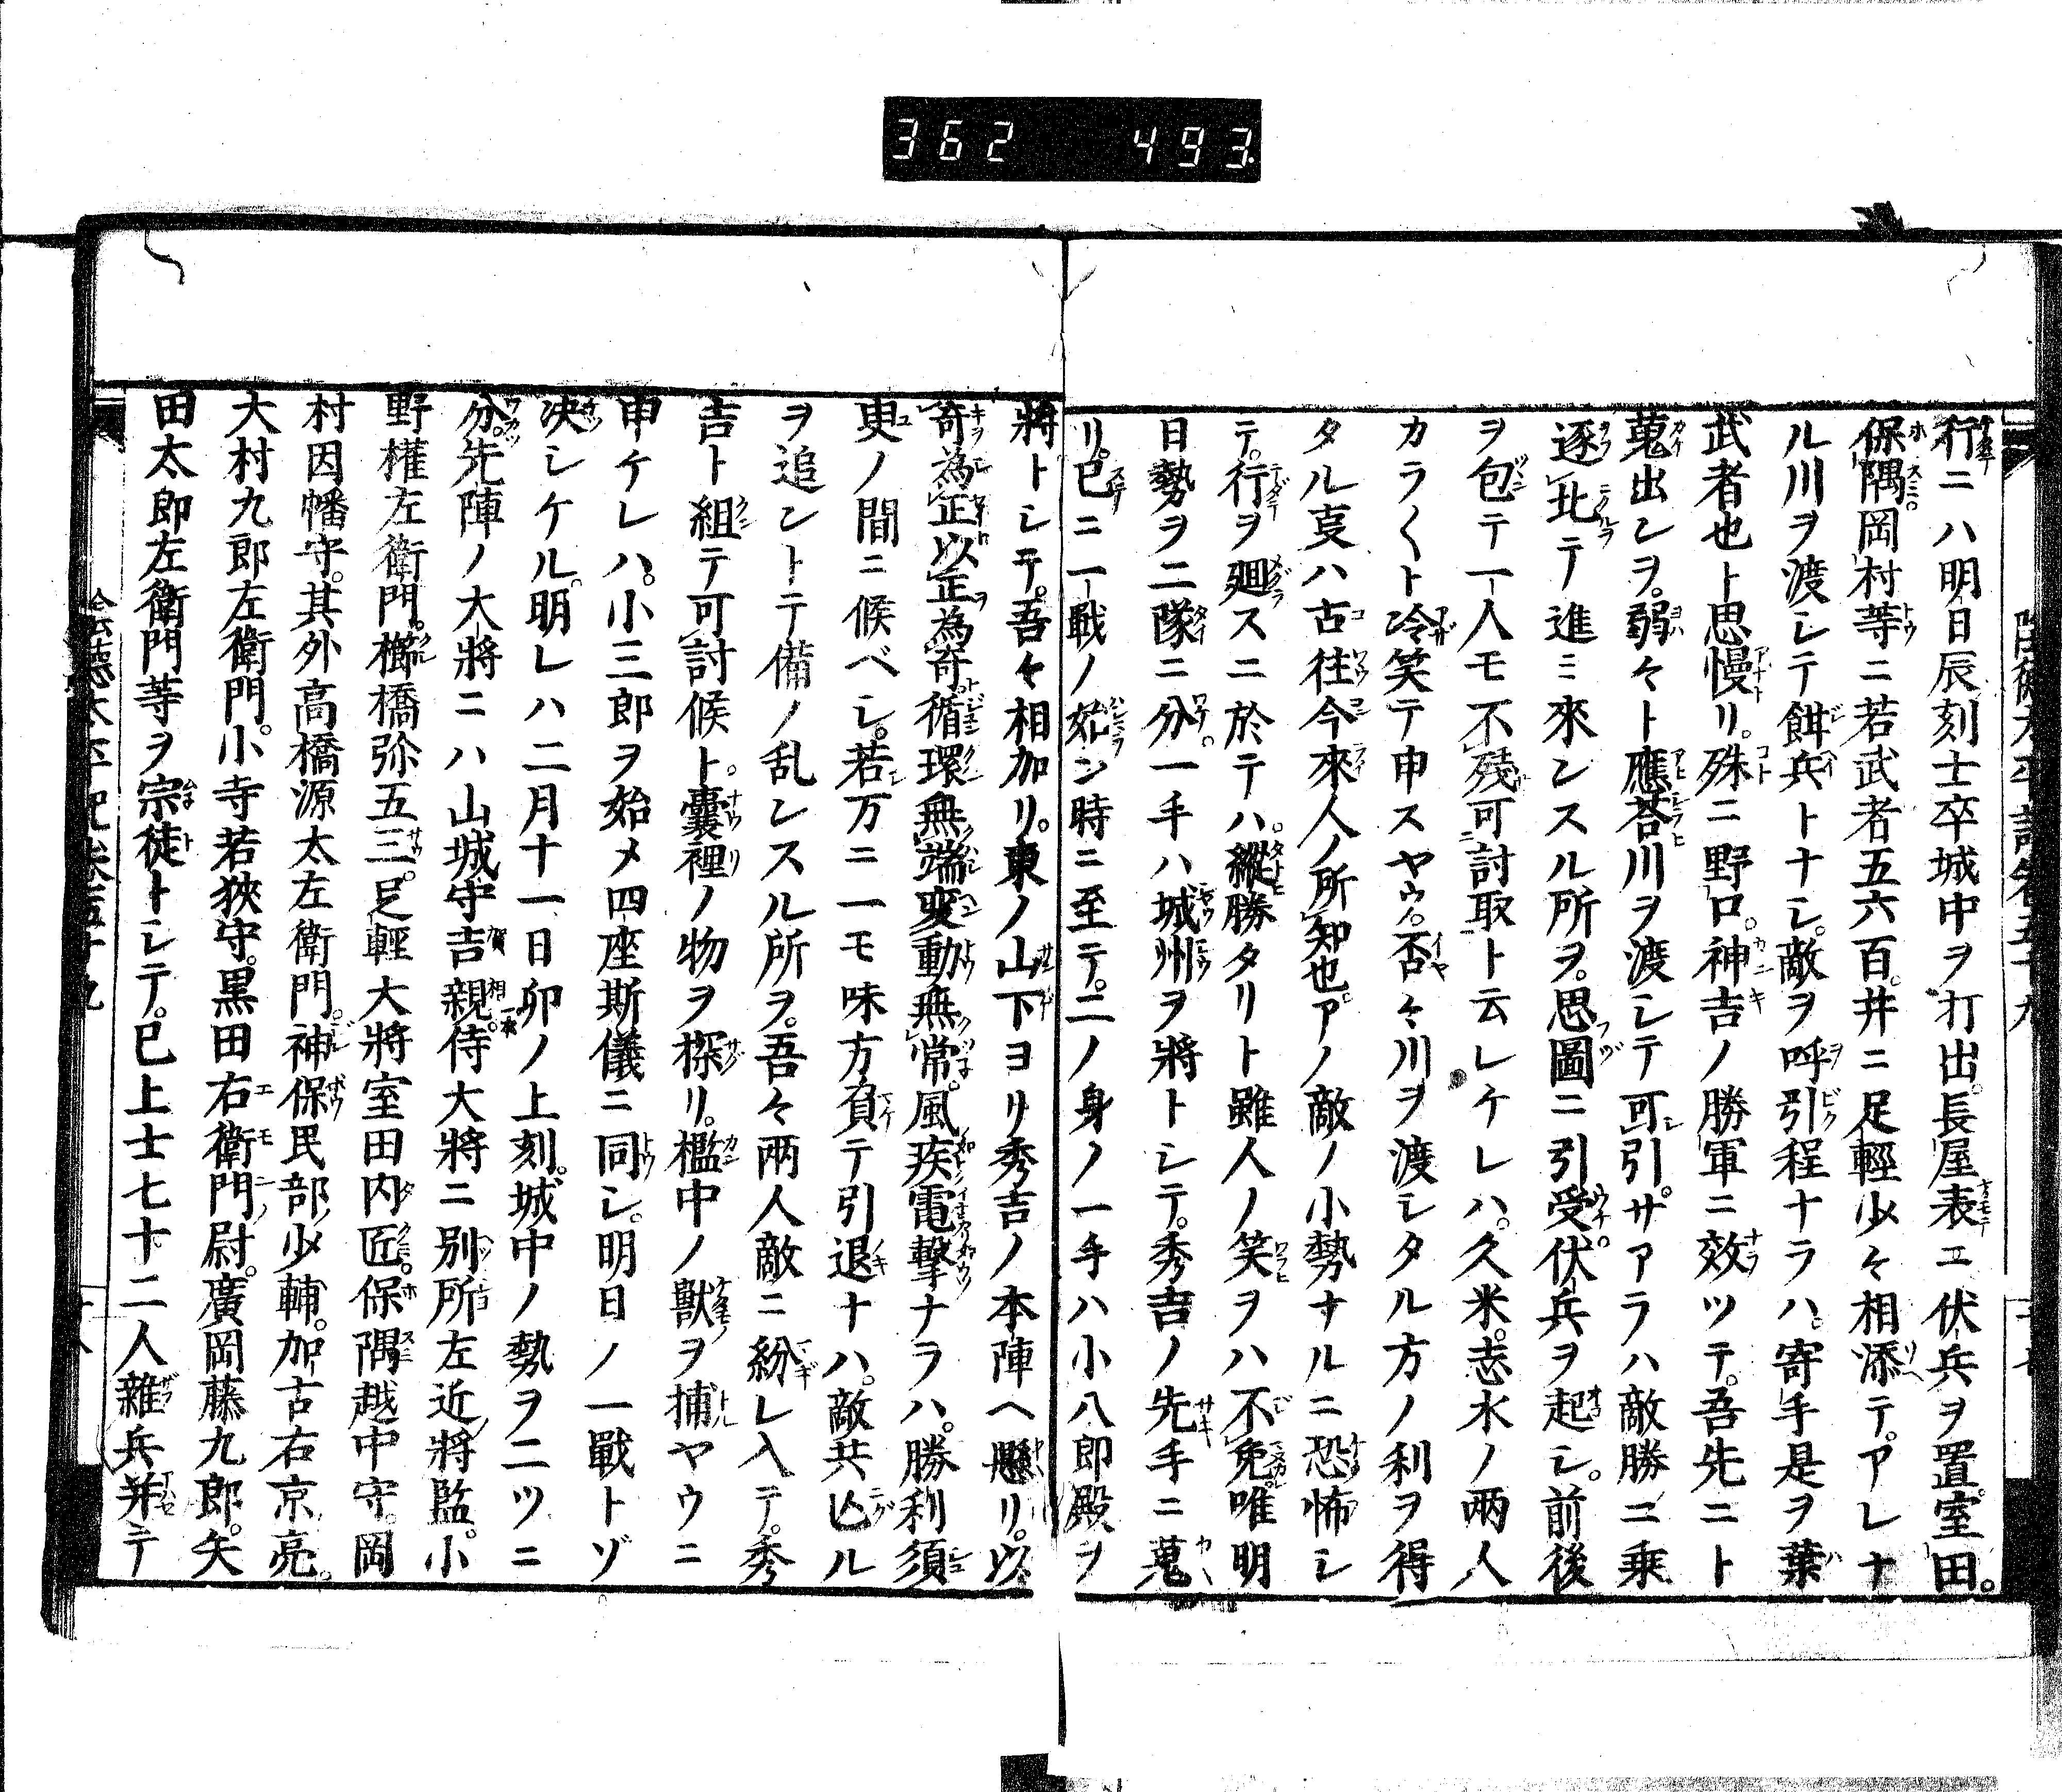 362 493
行ニハ明日辰刻士卒城中ヲ打出。長屋表エ伏兵ヲ置。室田。
保隅。岡村等ニ若武者五六百。井ニ足輕少々相添テ。アレナ
ル川ヲ渡シテ餌兵トナシ。敵ヲ呼引程ナラハ。寄手是ヲ葉
武者也ト思慢リ。殊ニ野口。神吉ノ勝軍ニ效ツテ。吾先ニト
蒐出シヲ。弱々ト應荅川ヲ渡シテ可引。サアラハ敵勝ニ乗
逐北テ進ミ來ンスル所ヲ。思圖ニ引受伏兵ヲ起シ。前後
ヲ包テ一人モ不残可討取ト云レケレハ。久米。志水ノ兩人
カラ〱ト冷笑テ申スヤウ。否々川ヲ渡シタル方ノ利ヲ得
タル亨ハ古往今來人ノ所知也。アノ敵ノ小勢ナルニ恐怖シ
テ。行ヲ廻スニ於テハ。縱勝タリト雖人ノ笑ヲハ不免。唯明
日勢ヲ二隊ニ分。一手ハ城州ヲ將トシテ。秀吉ノ先手ニ蒐
リ。已ニ一戰ノ始ン時ニ至テ。二ノ身ノ一手ハ小八郎殿ヲ
將トシテ。吾々相加リ。東ノ山下ヨリ秀吉ノ本陣ヘ懸リ。以
奇為正以正為奇。循環無端変動無常。風疾電擊ナラハ。勝利須
臾ノ間ニ候ベシ。若万ニ一モ味方負テ引退ナハ。敵共ににルヲ
ヲ追ントテ備ノ乱レスル所ヲ。吾々兩人敵ニ紛レ入テ。秀
吉ト組テ可討候ト。囊裡ノ物ヲ探リ。檻中ノ獸ヲ捕ヤウニ
申ケレハ。小三郎ヲ始メ四座斯儀ニ同シ。明日ノ一戰トゾ
决シケル。明レハ二月十一日卯ノ上刻。城中ノ勢ヲ二ツニ
分。先陣ノ大將ニハ山城守吉親。侍大將ニ別所左近將監。小
野權左衛門。櫛橋弥五三。足輕大將室田内匠。保隅越中守。岡
村因幡守。其外高橋源太左衛門。神保民部少輔。加古右京亮。
大村九郎左衛門。小寺若狹守。黒田右衛門尉。廣岡藤九郎。矢
田太郎左衛門等ヲ宗徒トシテ。已上士七十二人雜兵并テ